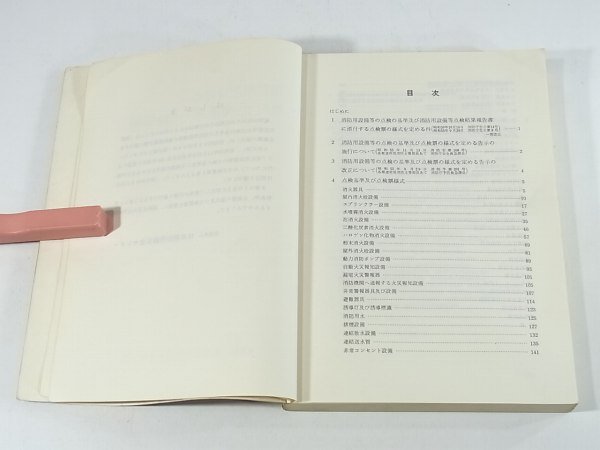 目 次
はじめに
1 消防用設備等の点検の基準及び消防用設備等点検結果報告書
に添付する点検票の様式を定める件 1
2 消防用設備等の点検の基準及び点検票の様式を定める告示の
施行について 2
3 消防用設備等の点検の基準及び点検票の様式を定める告示の
改正について 4
4 点検基準及び点検票様式 5
消火器具 5
屋内消火栓設備 10
スプリンクラー設備 17
水噴霧消火設備 27
泡消火設備 35
二酸化炭素消火設備 46
ハロゲン化物消火設備 57
粉末消火設備 68
屋外消火栓設備 80
動力消防ポンプ設備 89
自動火災報知設備 93
漏電火災警報器 101
消防機関へ通報する火災報知設備 105
非常警報器具及び設備 107
避難器具 114
誘導灯及び誘導標識
消防用水 125
排煙設備 127
連結散水設備 132
連結送水管
非常コンセント設備 141